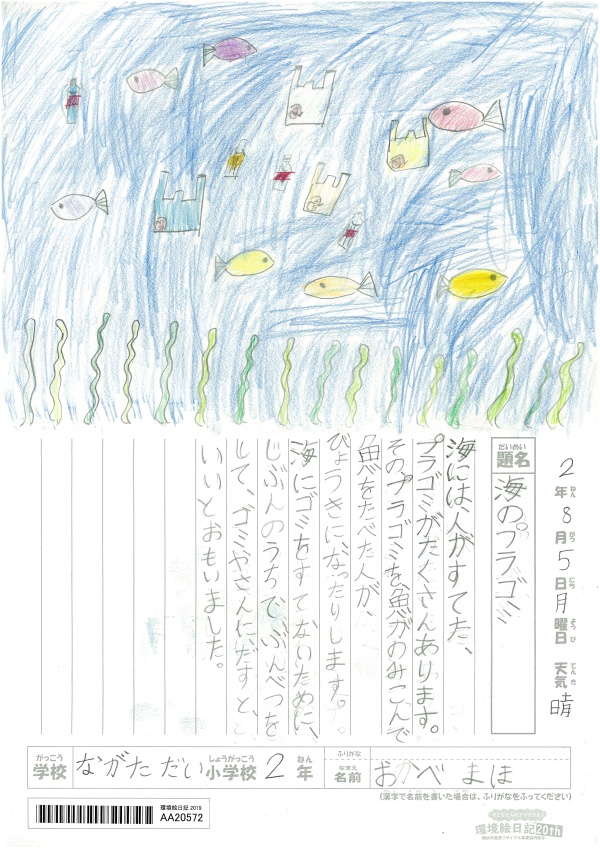 2年8月5日月曜日 天気 晴
ねん がつ にち ようび てんき
だいめい
題名 海のプラゴミ
海には、人がすてた、
プラゴミがたくさんあります。
そのプラゴミを、魚がのみこんで
魚をたべた人が、
びょうきになったりします。
海にゴミをすてないために、
じぶんのうちで、ぶんべつを
して、ゴミやさんに、だすと、
いいとおもいました。
がっこう しょうがっこう ねん
学校 ながただい小学校 2年
ふりがな
なまえ
名前 おかべ まほ
(漢字で名前を書いた場合は、ふりがなをふってください)
環境絵日記 2019
AA20572
環境絵日記 20th